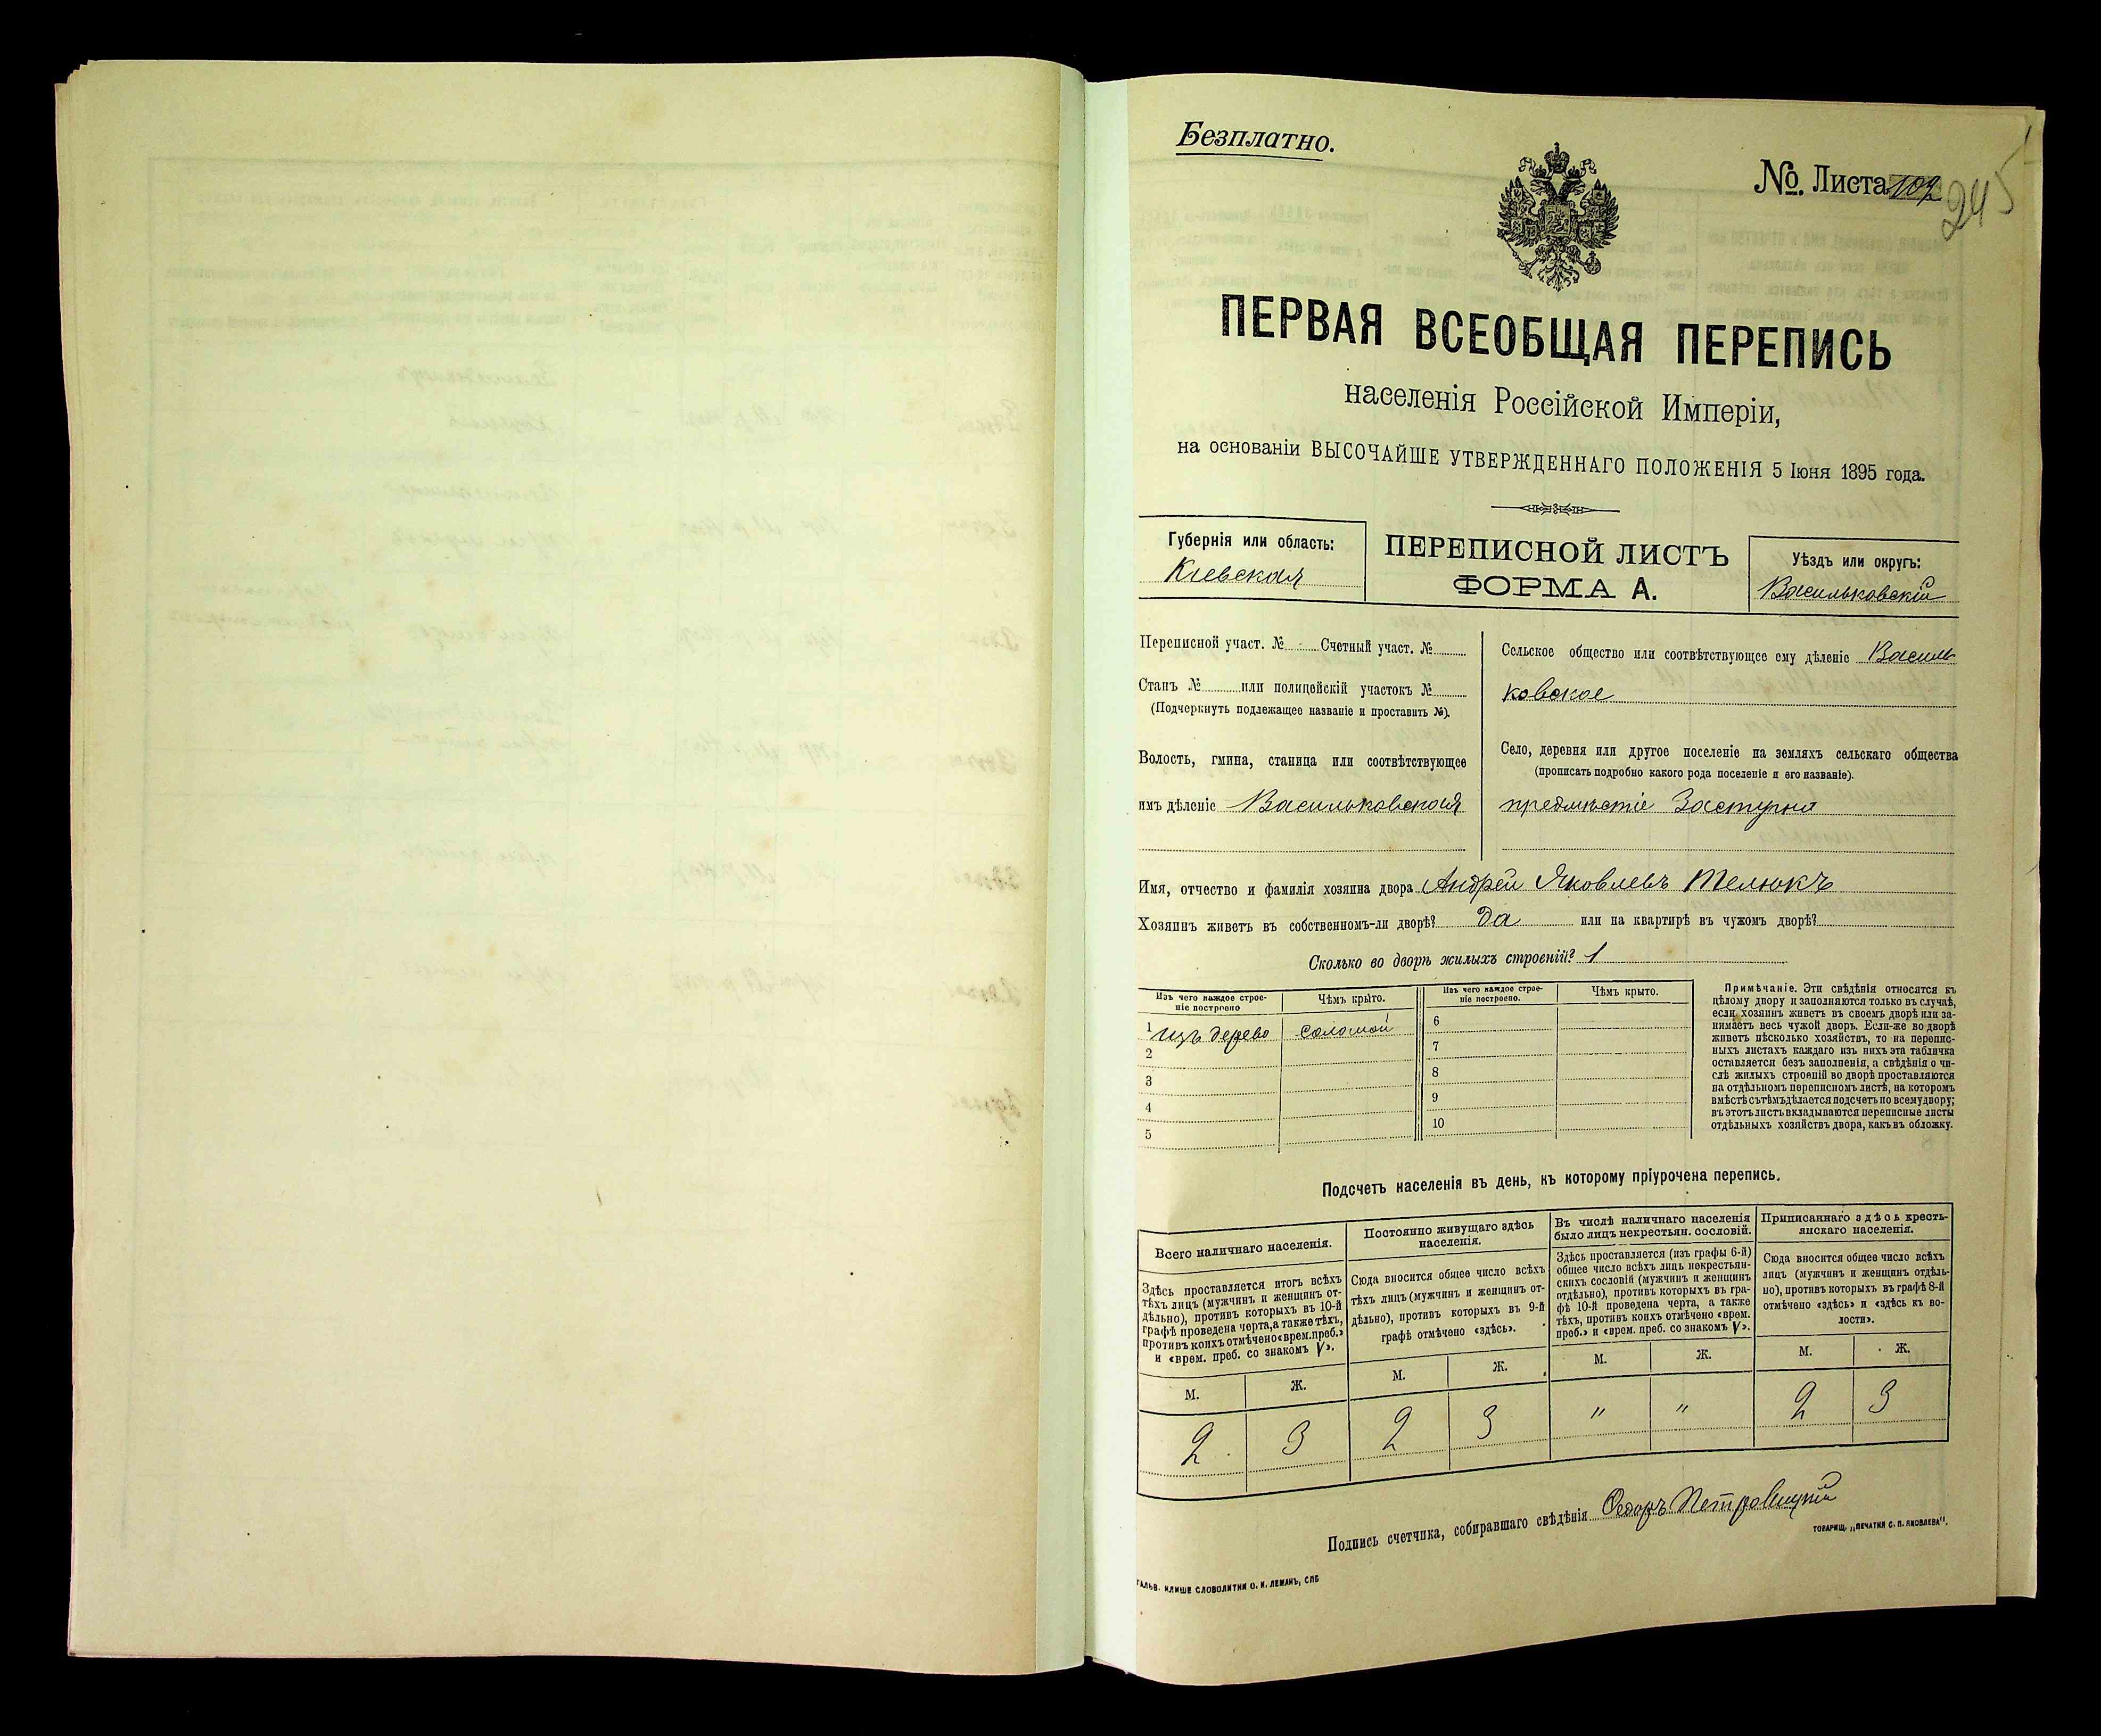 Безплатно.
№. Листа 102
245
ПЕРВАЯ ВСЕОБЩАЯ ПЕРЕПИСЬ
населенія Россійской Имперіи,
на основаніи ВЫСОЧАЙШЕ УТВЕРЖДЕННАГО ПОЛОЖЕНІЯ 5 Іюня 1895 года.
Губернія или область:
Кіевская
ПЕРЕПИСНОЙ ЛИСТЪ
ФОРМА А.
Уѣздъ или округъ:
Васильковскій
Переписной участ. № Счетный участ. №
Станъ № или полицейскій участокъ №
(Подчеркнуть подлежащее названіе и проставить №).
Волость, гмина, станица или соотвѣтствующее
имъ дѣленіе Васильковская
Сельское общество или соотвѣтствующее ему дѣленіе Василь
ковское
Село, деревня или другое поселеніе на земляхъ сельскаго общества
(прописать подробно какого рода поселеніе и его названіе).
предмѣстіе Застугна
Имя, отчество и фамилія хозяина двора Андрей Яковлевъ Телюкъ
Хозяинъ живетъ въ собственномъ-ли дворѣ? Да или на квартирѣ въ чужомъ дворѣ?
Сколько во дворѣ жилыхъ строеній? 1
Изъ чего каждое строе-
ніе построено
Чѣмъ крыто.
1 изъ дерево соломой
2
3
4
5
Изъ чего каждое строе-
ніе построено.
Чѣмъ крыто.
6
7
8
9
10
Примѣчаніе. Эти свѣдѣнія относятся къ
цѣлому двору и заполняются только въ случаѣ,
если хозяинъ живетъ въ своемъ дворѣ или за-
нимаетъ весь чужой дворъ. Если-же во дворѣ
живетъ нѣсколько хозяйствъ, то на перепис-
ныхъ листахъ каждаго изъ нихъ эта табличка
оставляется безъ заполненія, а свѣдѣнія о чи-
слѣ жилыхъ строеній во дворѣ проставляются
на отдѣльномъ переписномъ листѣ, на которомъ
вмѣстѣ съ тѣмъ дѣлается подсчетъ по всему двору;
въ этотъ листъ вкладываются переписные листы
отдѣльныхъ хозяйствъ двора, какъ въ обложку.
Подсчетъ населенія въ день, къ которому пріурочена перепись.
Всего наличнаго населенія.
Здѣсь проставляется итогъ всѣхъ
тѣхъ лицъ (мужчинъ и женщинъ от-
дѣльно), противъ которыхъ въ 10-й
графѣ проведена черта, а также тѣхъ,
противъ коихъ отмѣчено «врем. преб.»
и «врем. преб. со знакомъ V».
М. Ж.
2 3
Постоянно живущаго здѣсь
населенія.
Сюда вносится общее число всѣхъ
тѣхъ лицъ (мужчинъ и женщинъ от-
дѣльно), противъ которыхъ въ 9-й
графѣ отмѣчено «здѣсь».
М. Ж.
2 3
Въ числѣ наличнаго населенія
было лицъ некрестьян. сословій.
Здѣсь проставляется (изъ графы 6-й)
общее число всѣхъ лицъ некрестьян-
скихъ сословій (мужчинъ и женщинъ
отдѣльно), противъ которыхъ въ гра-
фѣ 10-й проведена черта, а также
тѣхъ, противъ коихъ отмѣчено «врем.
преб.» и «врем. преб. со знакомъ V».
М. Ж.
" "
Приписаннаго здѣсь кресть-
янскаго населенія.
Сюда вносится общее число всѣхъ
лицъ (мужчинъ и женщинъ отдѣль-
но), противъ которыхъ въ графѣ 8-й
отмѣчено «здѣсь» и «здѣсь къ во-
лости».
М. Ж.
2 3
Подпись счетчика, собиравшаго свѣдѣнія Ѳедоръ Петровицкій
ТОВАРИЩ. „ПЕЧАТНИ С. П. ЯКОВЛЕВА".
ГАЛЬВ. КЛИШЕ СЛОВОЛИТНИ О. И. ЛЕМАНЪ, СПБ